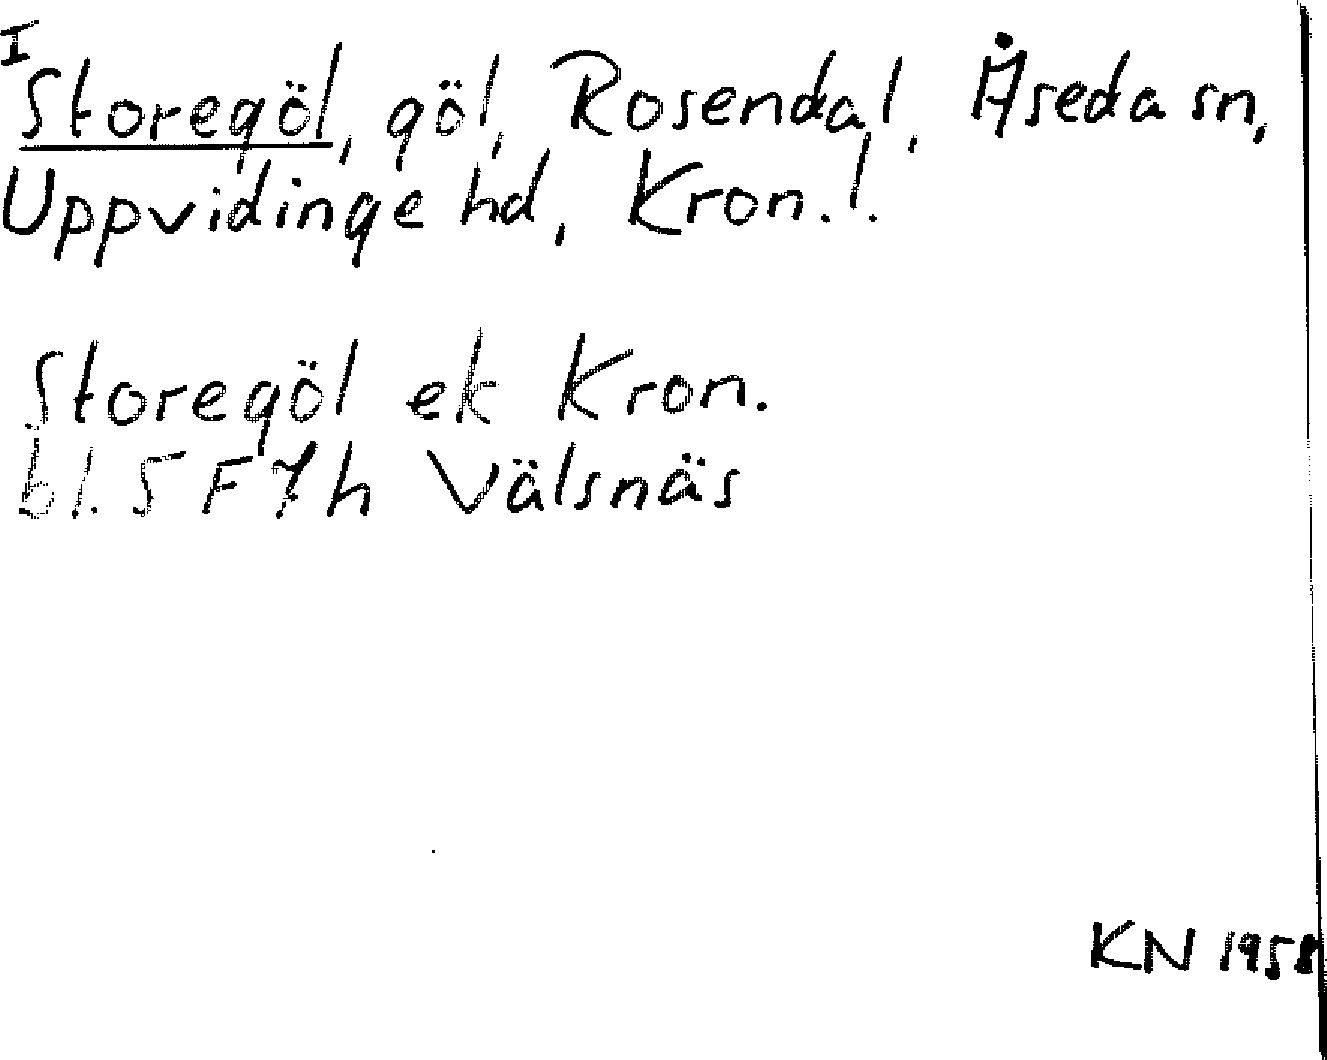 I
Storegöl, göl, Rosendal, Åseda sn,
Uppvidinge hd, Kron.l.
Storegöl ek Kron.
bl. 5 F 7h Välsnäs
KN 1958